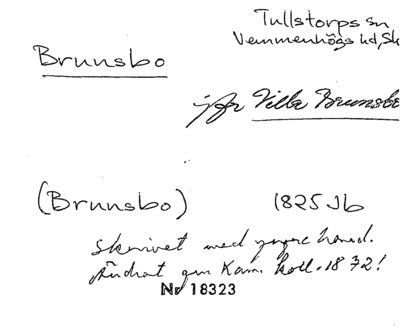 Tullstorps sn
Vemmenhögs hd, Sk
Brunsbo
jfr Villa Brunsbo
(Brunsbo) 1825 Jb
Skrivet med yngre hand.
Ändrat gm Kam. koll. 1872!
Nr 18323